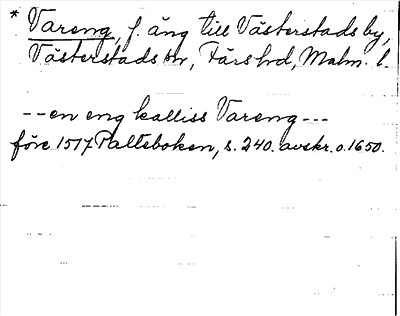 * Vareng, f. äng till Västerstads by,
Västerstads sn, Färs hd, Malm. l.
--en eng kalliss Vareng---
före 1517 Palteboken, s. 240. avskr. o. 1650.